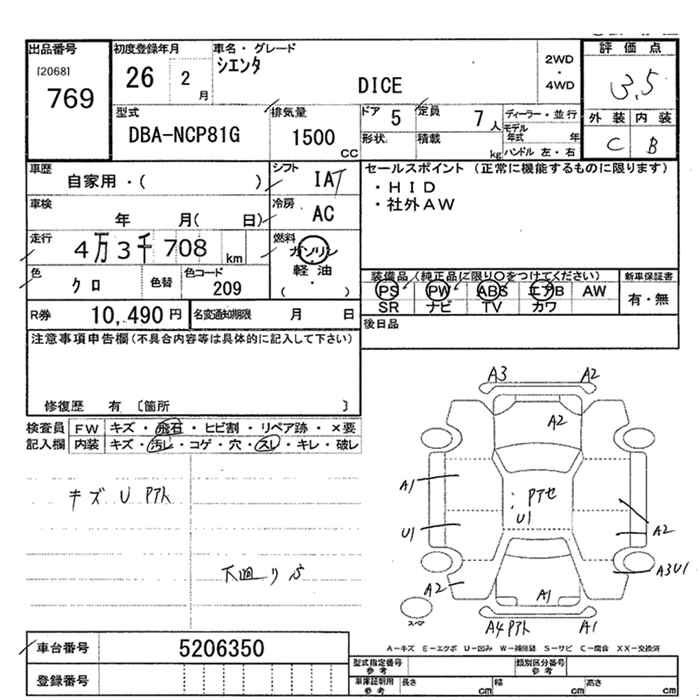 出品番号
[2068]
769
初度登録年月
26 2 月
車名・グレード
シエンタ
DICE
2WD
・
4WD
評価点
3.5
外装 内装
C B
型式
DBA-NCP81G
排気量
1500 CC
ドア 5
定員 7 人
形状
積載 kg
ディーラー・並行
モデル年式 年
ハンドル 左・右
車歴
自家用・( )
シフト IAT
車検 年 月( 日)
冷房 AC
走行 4万3千708 km
燃料 ガソリン
軽油
( ・ )
色 クロ
色替
色コード 209
R券 10,490 円
名変通知期限 月 日
セールスポイント (正常に機能するものに限ります)
・HID
・社外AW
装備品(純正品に限り○をつけてください)
PS PW ABS エアB AW
SR ナビ TV カワ
新車保証書
有・無
後日品
注意事項申告欄(不具合内容等は具体的に記入して下さい)
修復歴 有 [箇所 ]
検査員記入欄
FW キズ・飛石・ヒビ割・リペア跡・×要
内装 キズ・汚レ・コゲ・穴・スレ・キレ・破レ
キズ U Pアト
下廻り
A3 A2
A2
A1
Pアセ
U1
U1
A2
A2
A3U1
A2
A1
A4 Pアト A1
スペア
A-キズ E-エクボ U-凹み W-補修跡 S-サビ C-腐食 XX-交換済
車台番号 5206350
登録番号
型式指定番号 参考
類別区分番号 参考
車庫証明用 参考
長さ cm 幅 cm 高さ cm